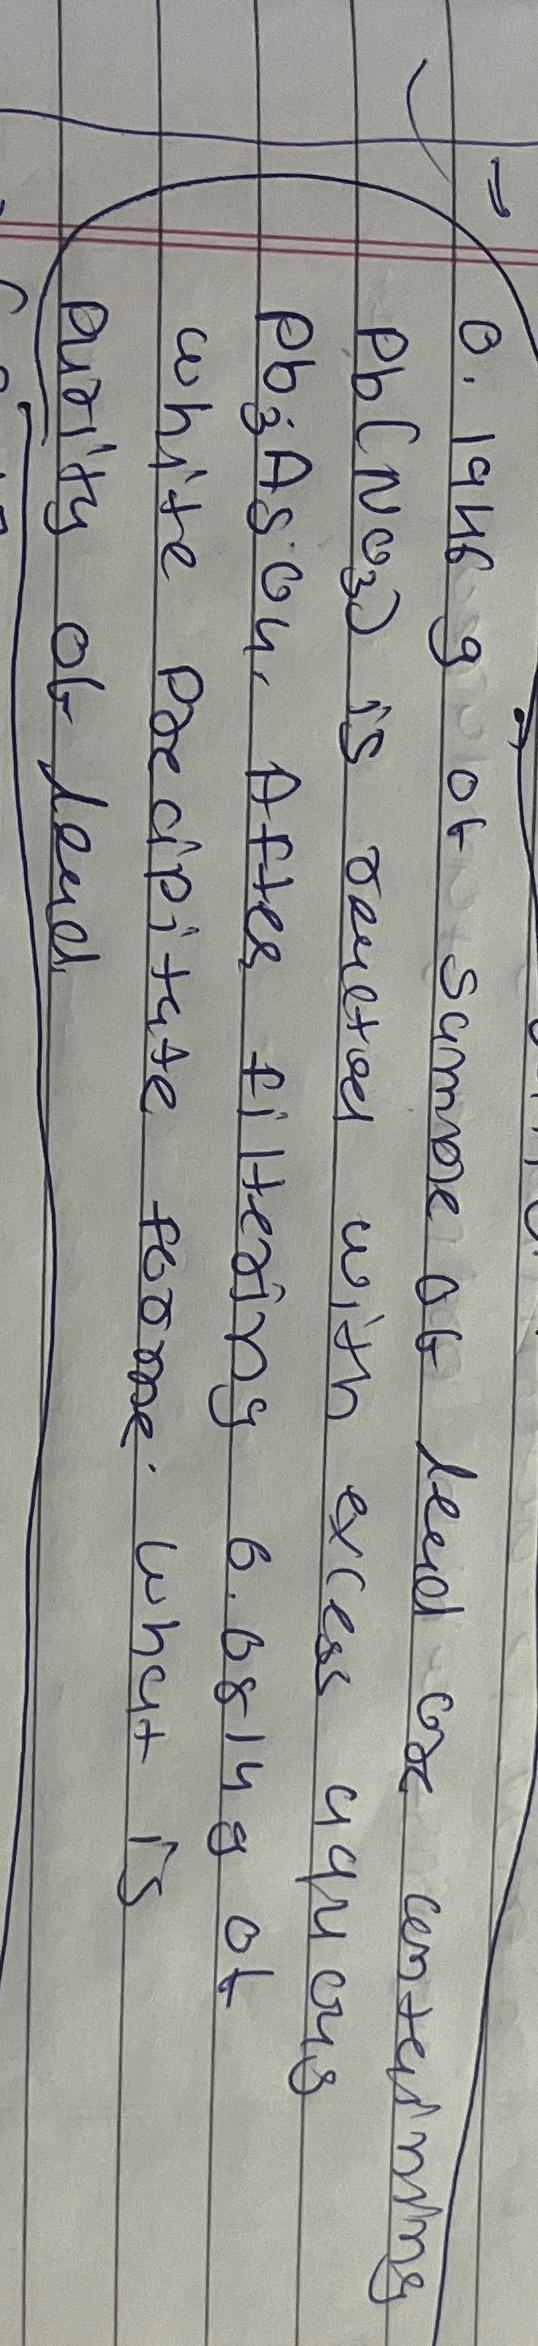 → 0.1946 g of sample of lead ore containing
Pb(NO3) is reacted with excess aquous
Pb3AsO4. After filtering 6.6814g of
white precipitate forme. what is
purity of lead